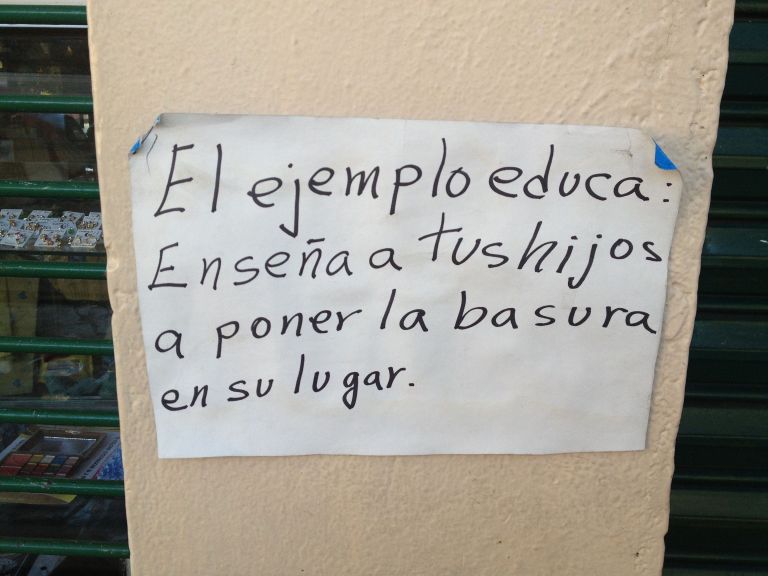 El ejemplo educa:
Enseña a tus hijos
a poner la basura
en su lugar.